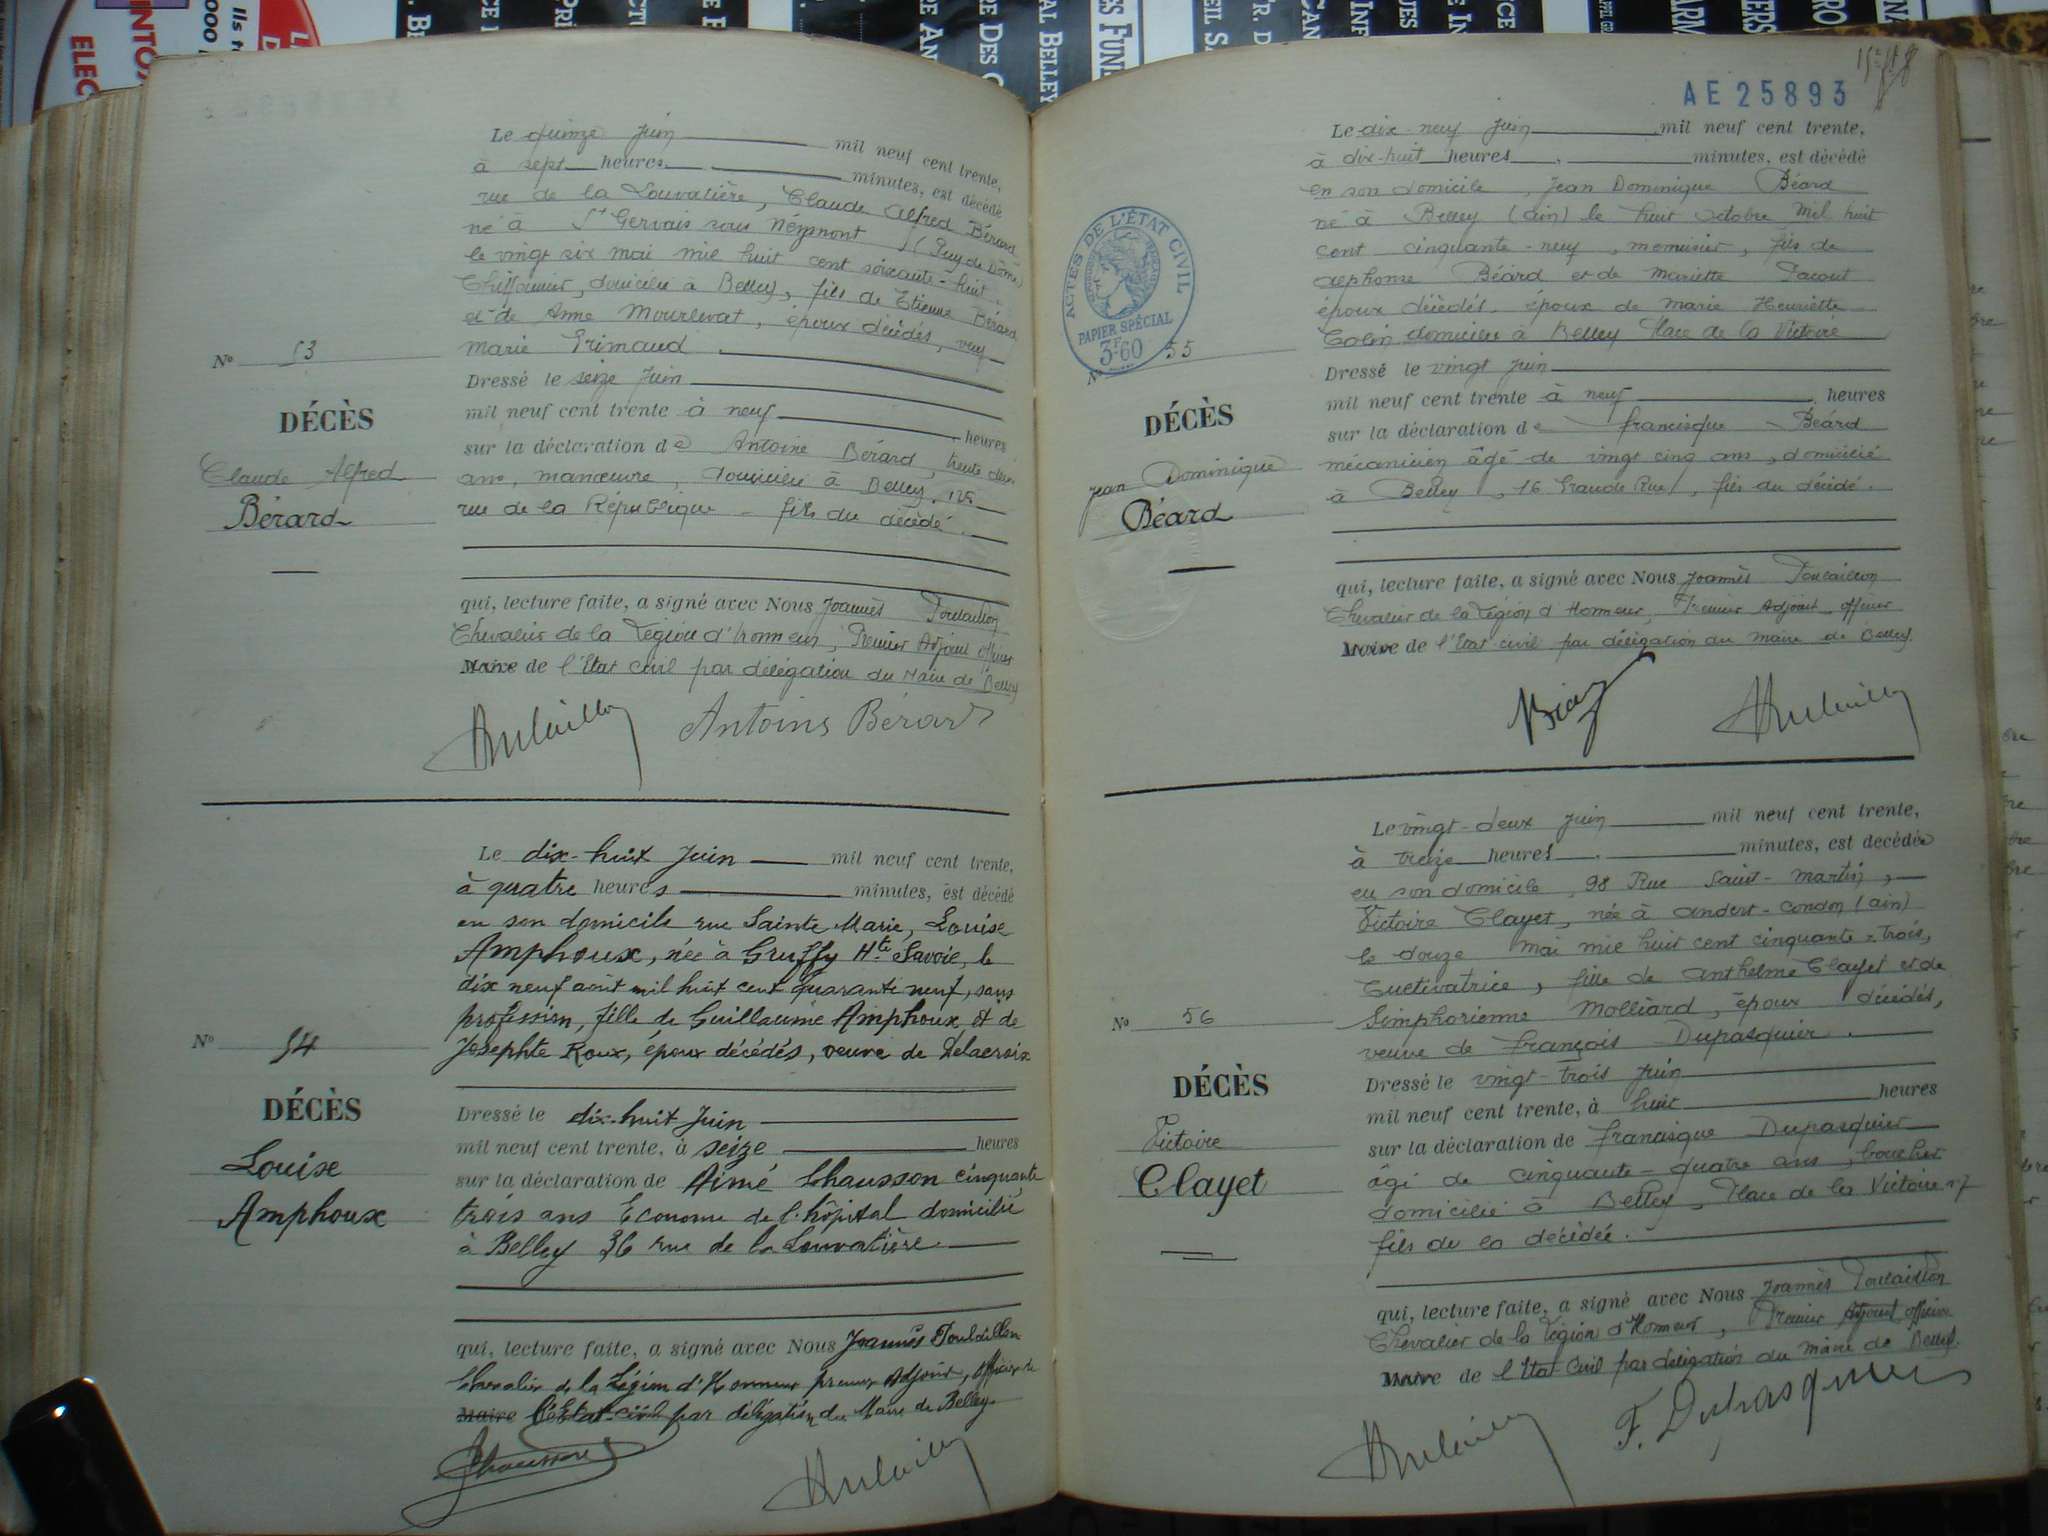 Le quinze Juin mil neuf cent trente,
à sept heures, minutes, est décédé
rue de la Louvatière, Claude Alfred Bérard
né à St Gervais sous Meymont (Puy de Dôme)
le vingt six mai mil huit cent soixante-huit,
Chiffonnier, domicilié à Belley, fils de Etienne Bérard
et de Anne Mourlevat, époux décédés, veuf
marie Grimaud
Dressé le seize Juin
mil neuf cent trente à neuf heures
sur la déclaration de Antoine Bérard, trente deux
ans, manœuvre, domicilié à Belley, 125
rue de la République - fils du décédé.
qui, lecture faite, a signé avec Nous Joannès Poulaillon
Chevalier de la Légion d'honneur, Premier Adjoint officier
Maire de l'Etat civil par délégation du Maire de Belley
Antoine Bérard
No 53
DÉCÈS
Claude Alfred
Bérard
Le dix-huit Juin mil neuf cent trente,
à quatre heures minutes, est décédé
en son domicile rue Sainte Marie, Louise
Amphoux, née à Gruffy Hte Savoie, le
dix neuf août mil huit cent quarante neuf, sans
profession, fille de Guillaume Amphoux et de
Josephte Roux, époux décédés, veuve de Delacroix
Dressé le dix-huit Juin
mil neuf cent trente, à seize heures
sur la déclaration de Aimé Chausson cinquante
trois ans Econome de l'hôpital domicilié
à Belley 36 rue de la Louvatière.
qui, lecture faite, a signé avec Nous Joannès Poulaillon
Chevalier de la Légion d'Honneur premier Adjoint, officier de
Maire l'Etat-civil par délégation du Maire de Belley.
Chausson
No 54
DÉCÈS
Louise
Amphoux
AE 25893
ACTES DE L'ÉTAT CIVIL
PAPIER SPÉCIAL
3F60
Le dix-neuf Juin mil neuf cent trente,
à dix-huit heures, minutes, est décédé
en son domicile, Jean Dominique Béard
né à Belley (ain) le huit octobre mil huit
cent cinquante-neuf, menuisier, fils de
alphonse Béard et de Mariette Pacout
époux décédés. époux de Marie Henriette
Colin domicilié à Belley Place de la Victoire
Dressé le vingt Juin
mil neuf cent trente à neuf heures
sur la déclaration de francisque Béard
mécanicien âgé de vingt cinq ans, domicilié
à Belley, 16 Grande Rue, fils du décédé.
qui, lecture faite, a signé avec Nous Joannès Poulaillon
Chevalier de la Légion d'Honneur, Premier Adjoint officier
Maire de l'Etat-civil par délégation du Maire de Belley
No 55
DÉCÈS
Jean Dominique
Béard
Le vingt-deux Juin mil neuf cent trente,
à treize heures, minutes, est décédée
en son domicile, 98 Rue Saint-Martin,
Victoire Clayet, née à Andert-Condon (ain)
le douze Mai mil huit cent cinquante-trois,
Cultivatrice, fille de Anthelme Clayet et de
Simphorienne Molliard, époux décédés,
veuve de François Dupasquier.
Dressé le vingt-trois Juin
mil neuf cent trente, à huit heures
sur la déclaration de Francisque Dupasquier
âgé de cinquante-quatre ans, boucher
domicilié à Belley, Place de la Victoire 17
fils de la décédée.
qui, lecture faite, a signé avec Nous Joannès Poulaillon
Chevalier de la Légion d'Honneur, Premier Adjoint officier
Maire de l'Etat-Civil par délégation du Maire de Belley.
F. Dupasquier
No 56
DÉCÈS
Victoire
Clayet